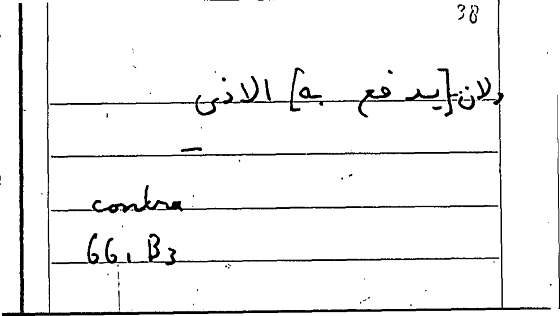 38
ولان [يدفع به] الاذى
—
contra
66, B3